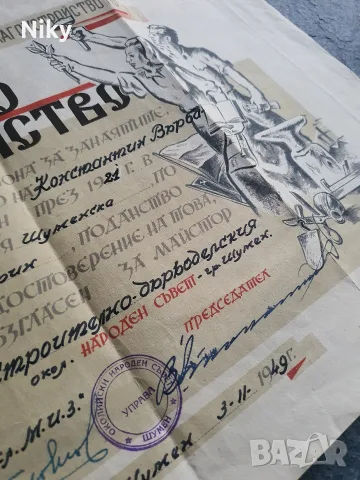 Niky
ЛАГОУСТРОЙСТВО
О
ЙСТВО
ОНА ЗА ЗАНАЯТИТЕ,
НА Константин Върба
ПРЕЗ 1921 Г. В
Шуменска ПО
ПОДАНСТВО
ДОСТОВЕРЕНИЕ НА ТОВА,
ВЪЗГЛАСЕН ЗА МАЙСТОР
троително-дърводелския
ОКОЛ. НАРОДЕН СЪВЕТ - гр. Шумен.
ПРЕДСЕДАТЕЛ
ОКОЛИЙСКИ НАРОДЕН СЪВЕТ
УПРАВА
ШУМЕН
л. М.И.З."
Шумен 3-II-1949 г.
BAZAR